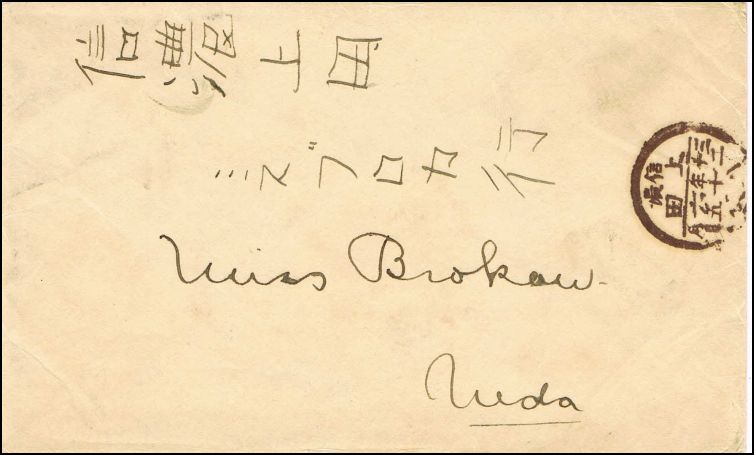 信濃上田
ミスブロカ行
Miss Brokaw
Ueda
信濃
上田